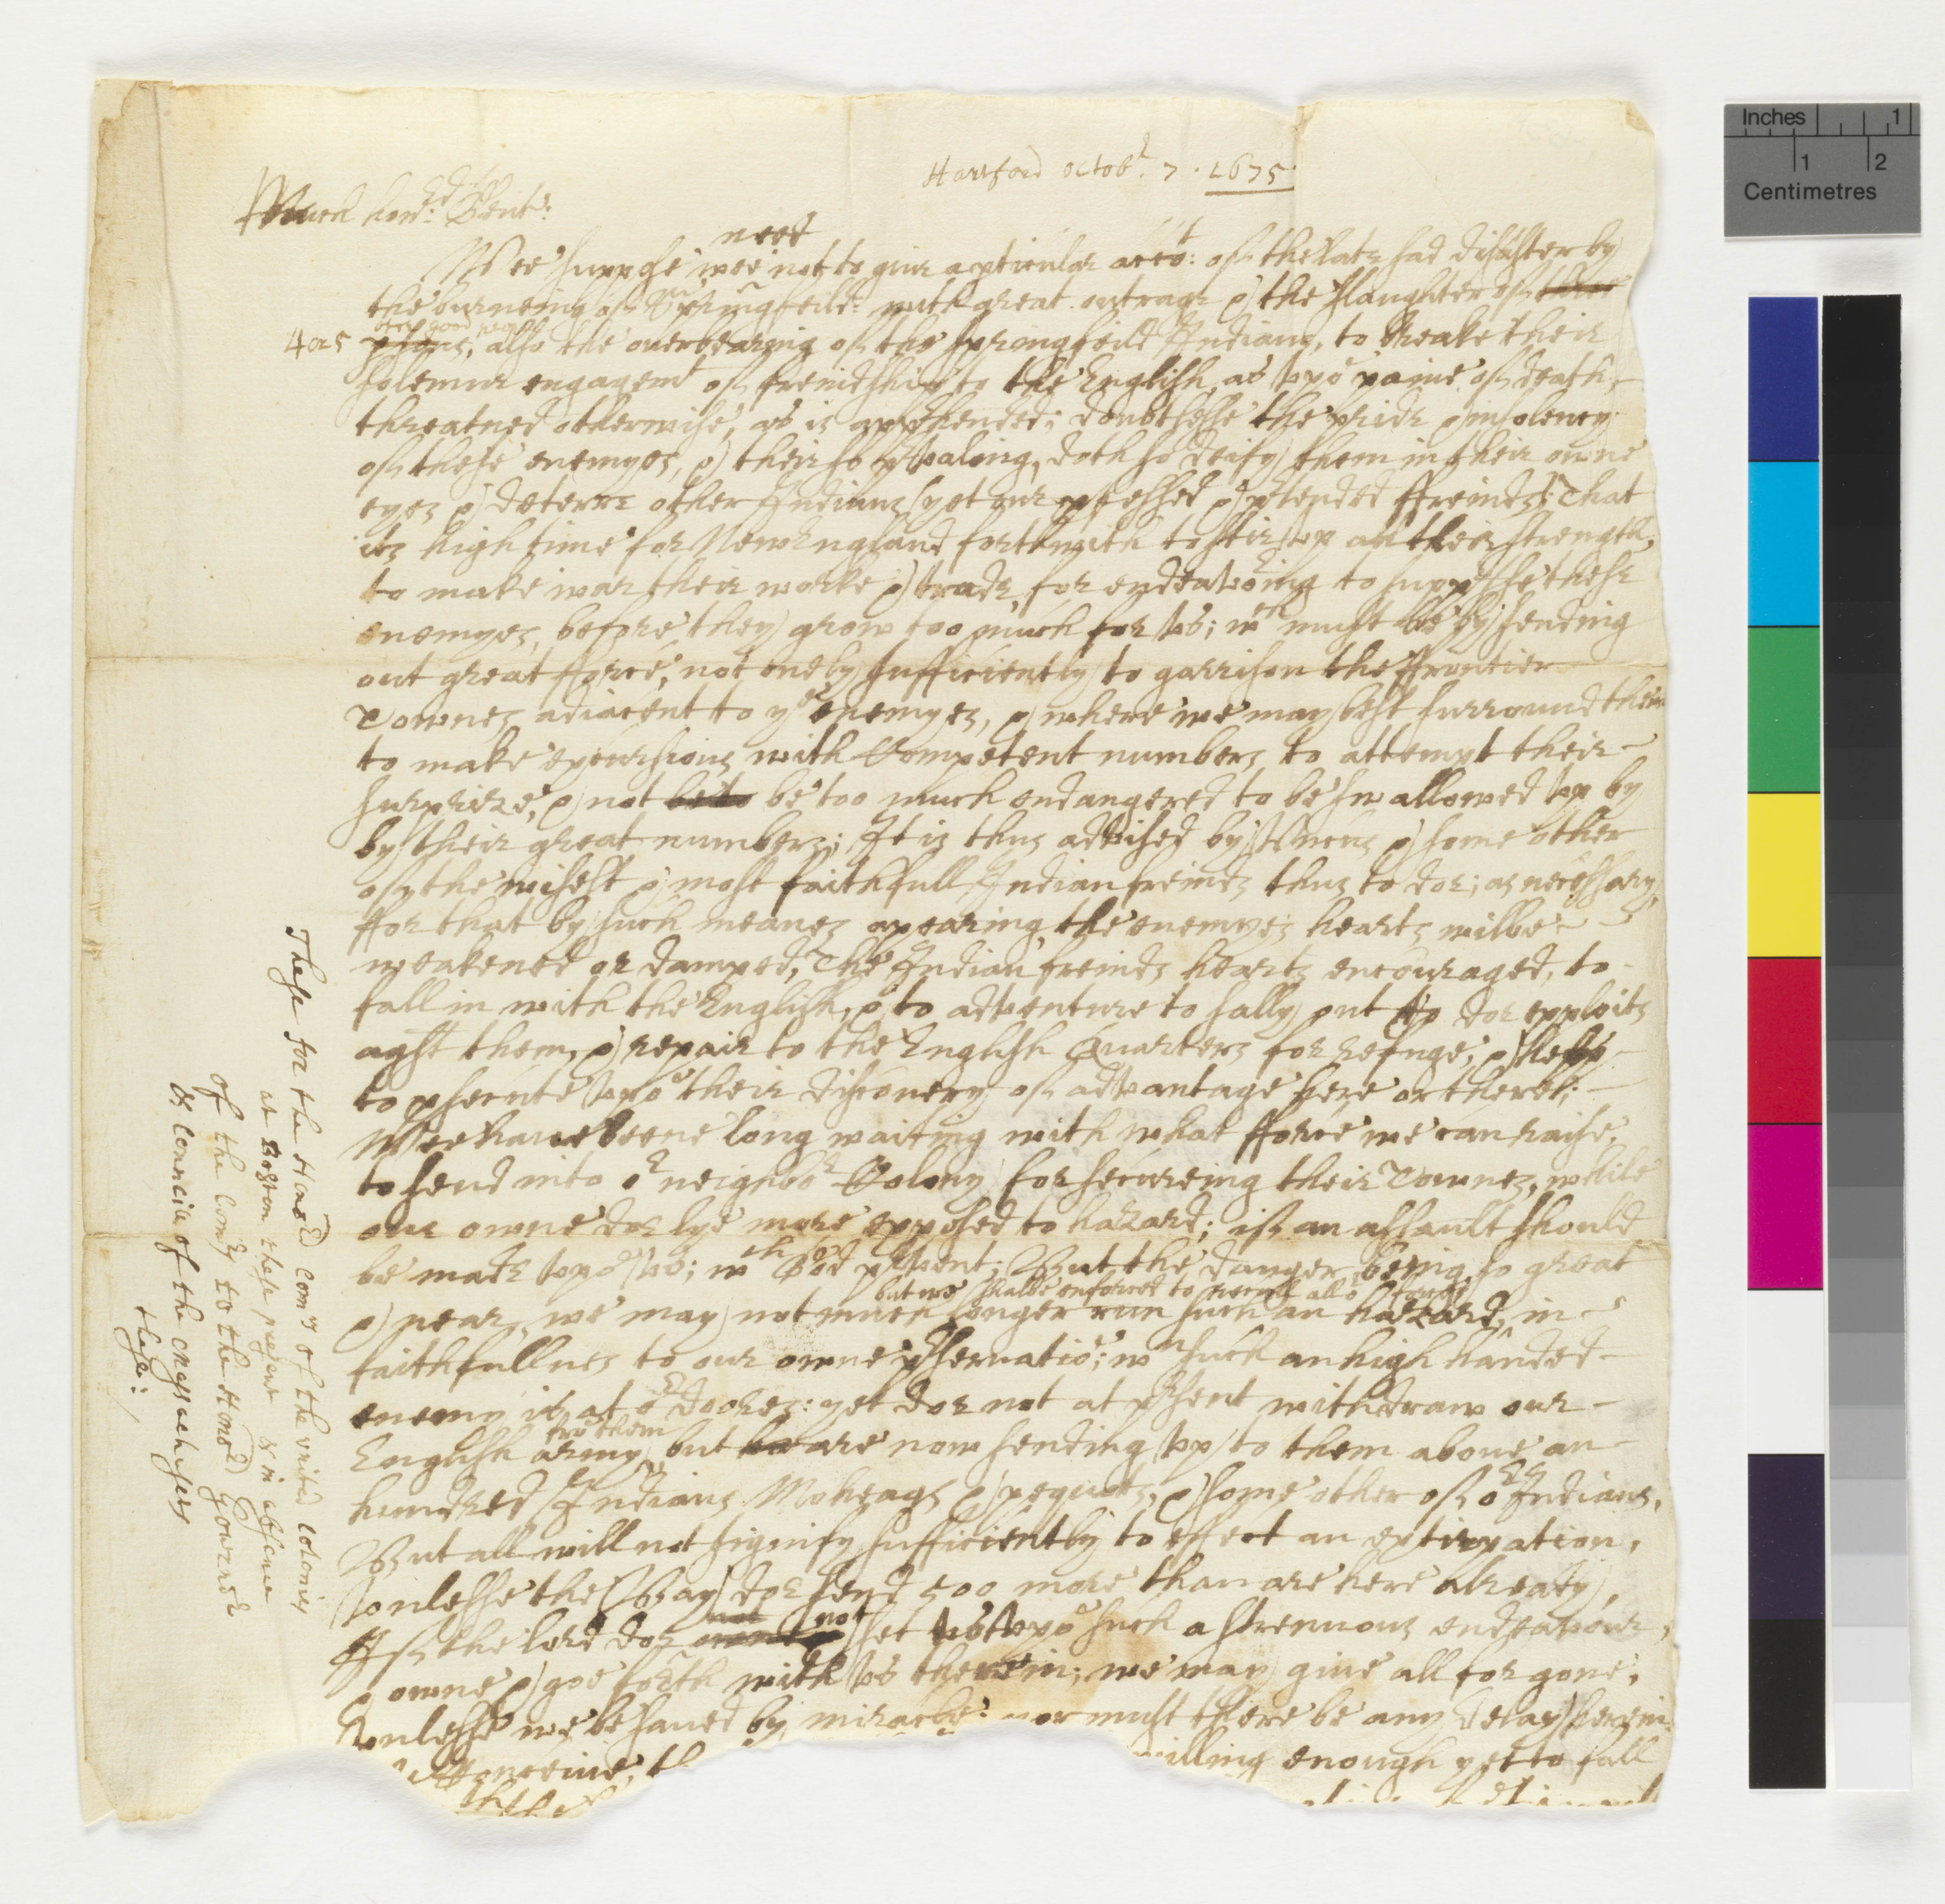 Hartford Octobr. 7. 1675.
Much honrd: Gent:
need
Wee suppose, wee not to giue a pticular acco:t of the late sad disaster by
the burneing of Springfeild: with great outrage & the slaughter of three
4 or 5 psons, also the ouerbearing of the Springfeild Indians, to breake their
of ye good people
solemne engagemt of freindship to the English, as vpō paine of death,
threatned otherwise, as is apprhended; doubtlesse the pride & insolency
of these enemyes, & their so prvaling, doth so deify them in their owne
eyes & deterre other Indians (yet our pfessed & prtended ffreinds) That
its high time for New England forthwith to stir vp all their strength,
to make war their worke & trade, for endeavoring to suppresse these
enemyes, before they grow too much for vs; wch must be by sending
out great fforce, not onely sufficiently to garrison the ffrontier
Townes adiacent to ye enemyes, & where we may best surround them
to make excursions with Competent numbers to attempt their
surprize, & not be to be too much endangered to be swallowed vp by
by their great numbers; It is thus advised by Vncus & some other
of the wisest & most faithfull Indian freinds thus to doe; as necessary,
ffor that by such meanes apearing, the enemyes hearts wilbe
weakened or damped, The Indian freinds hearts encouraged, to
fall in with the English, & to adventure to sally out to doe exploits
agst them, & repair to the English Quarters for refuge; & helpe
to psecute vpō their discouery of advantage here or there:
Wee haue beene long waiting with what fforce we can raise,
to send into or neighbor Colony for secureing their Townes, while
our owne doe lye more exposed to hazard; if an assault should
be made vpō vs; wch God prvent; But the danger being so great
but we shalbe enforced to recruit all or forces
& near, we may not much longer run such an hazard, in
faithfullnes to our owne prservatiō; wn such an high handed
enemy is at or doores: yet doe not at prsent withdraw our
frō them
English army, but are now sending vp to them aboue an
hundred Indians Moheags & pequots, & some other of or Indians,
But all will not signify sufficiently to effect an extirpation,
vnlesse the Bay doe send 500 more than are here already,
not not
If the lord doe set vs vpō such a strenuous endeavour,
& owne & goe forth with vs therein; we may giue all for gone,
vnlesse we be saued by miracle: nor must there be any delay herein
Conceiue, willing enough yet to fall
These for the Honord Comrs of the vnited Colonies
at Boston these present & in absence
of the Comrs to the Honord Gouernr
& Councill of the Massachusets
these: